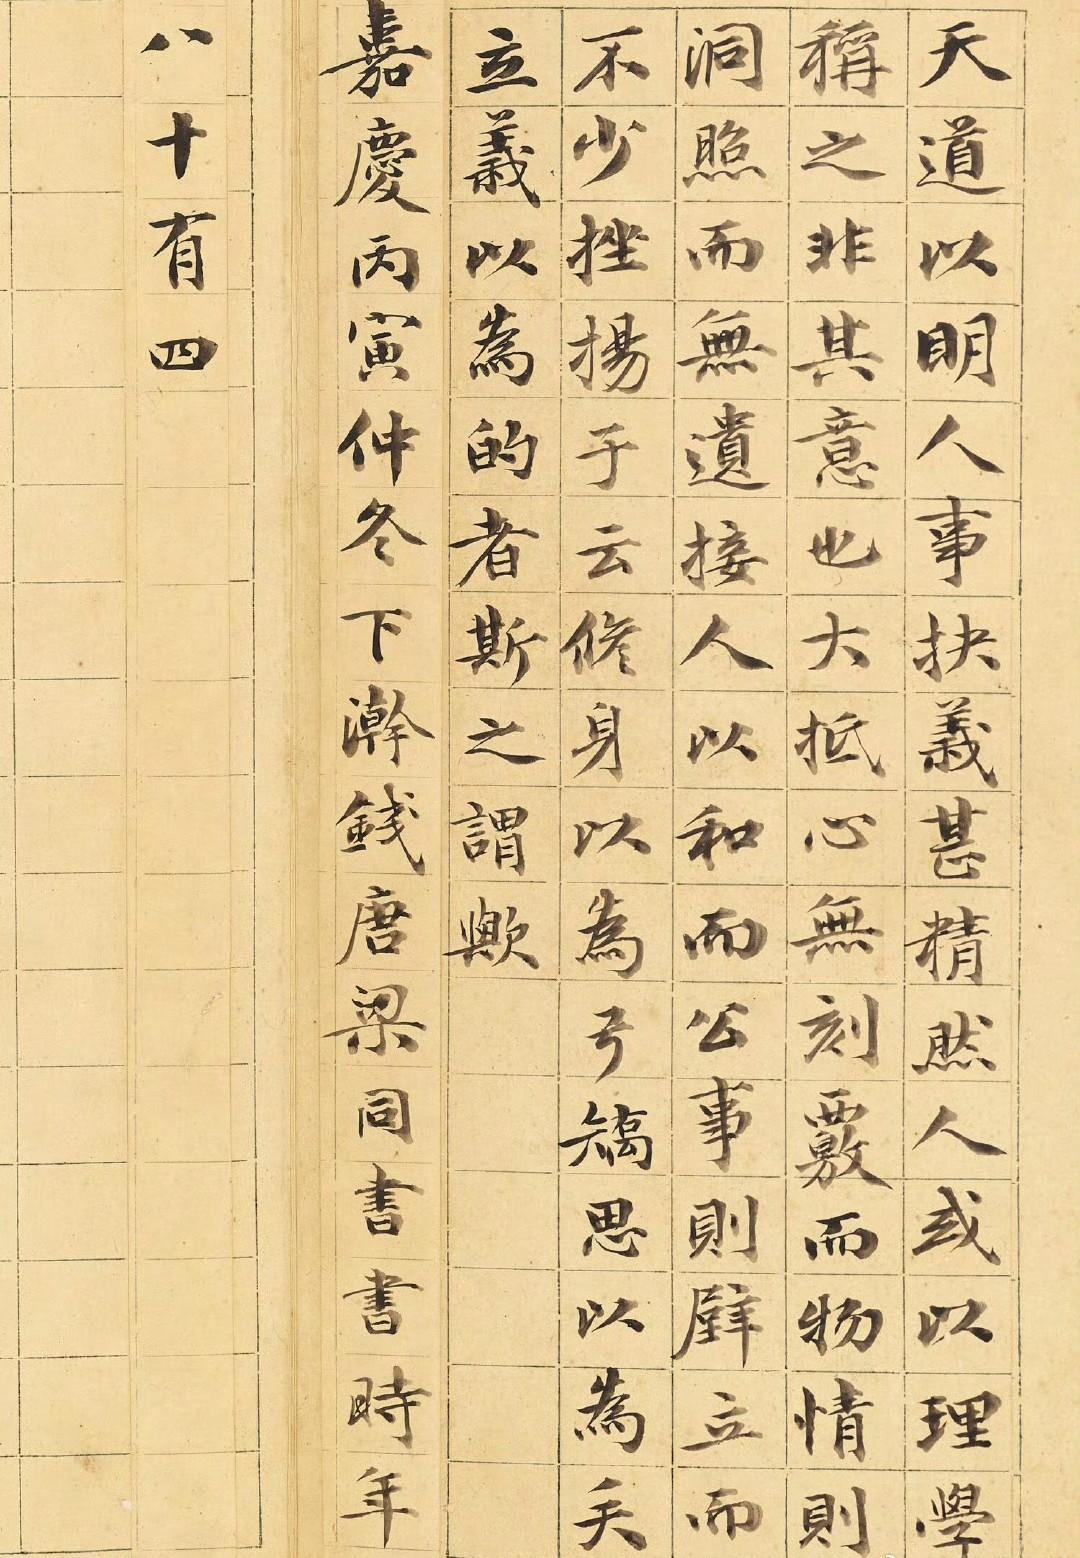 天道以明人事抉義甚精然人或以理學
稱之非其意也大抵心無刻覈而物情則
洞照而無遺接人以和而公事則壁立而
不少挫揚子云修身以為弓矯思以為矢
立義以為的者斯之謂歟
嘉慶丙寅仲冬下澣錢唐梁同書書時年
八十有四